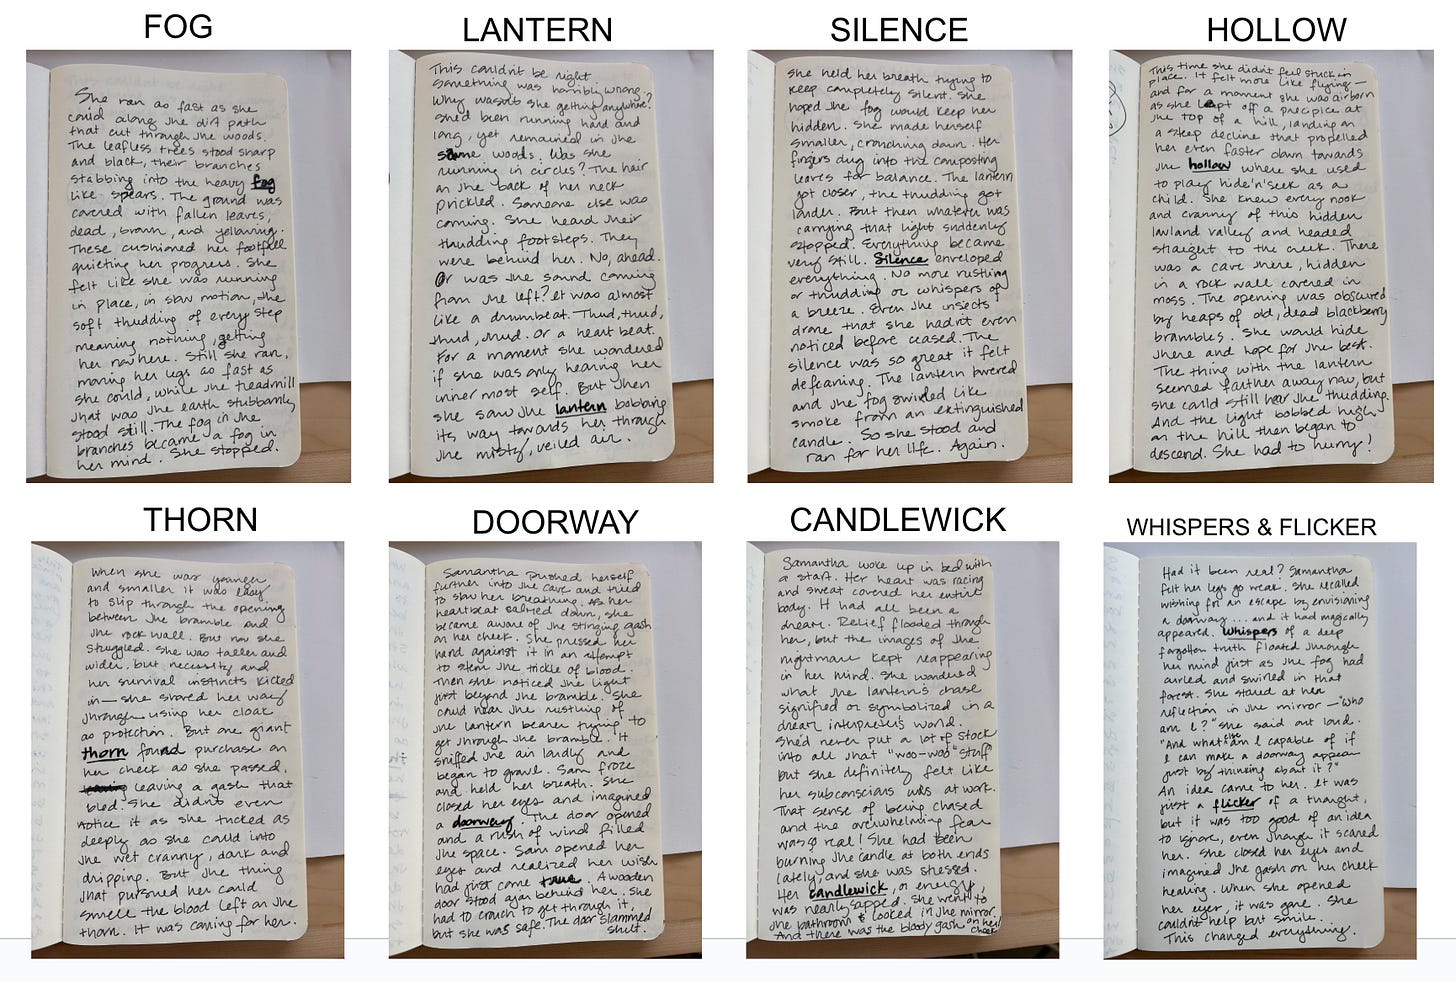 FOG
She ran as fast as she
could along the dirt path
that cut through the woods.
The leafless trees stood sharp
and black, their branches
stabbing into the heavy fog
like spears. The ground was
covered with fallen leaves,
dead, brown, and yellowing.
These cushioned her footfall
quieting her progress. She
felt like she was running
in place, in slow motion, the
soft thudding of every step
meaning nothing, getting
her nowhere. Still she ran,
moving her legs as fast as
she could, while the treadmill
that was the earth stubbornly
stood still. The fog in the
branches became a fog in
her mind. She stopped.
LANTERN
This couldn't be right
Something was horribly wrong.
Why wasn't she getting anywhere?
She'd been running hard and
long, yet remained in the
same woods. Was she
running in circles? The hair
on the back of her neck
prickled. Someone else was
coming. She heard their
thudding footsteps. They
were behind her. No, ahead.
Or was the sound coming
from the left? It was almost
like a drumbeat. Thud, thud,
thud, thud. Or a heart beat.
For a moment she wondered
if she was only hearing her
inner most self. But then
she saw the lantern bobbing
its way towards her through
the misty, veiled air.
SILENCE
She held her breath trying to
keep completely silent. She
hoped the fog would keep her
hidden. She made herself
smaller, crouching down. Her
fingers dug into the composting
leaves for balance. The lantern
got closer, the thudding got
louder. But then whatever was
carrying that light suddenly
stopped. Everything became
very still. Silence enveloped
everything. No more rustling
or thudding or whispers of
a breeze. Even the insects
drone that she hadn't even
noticed before ceased. The
silence was so great it felt
defeaning. The lantern lowered
and the fog swirled like
smoke from an extinguished
candle. So she stood and
ran for her life. Again.
HOLLOW
This time she didn't feel stuck in
place. It felt more like flying —
and for a moment she was airborn
as she leapt off a precipice at
the top of a hill, landing on
a steep decline that propelled
her even faster down towards
the hollow where she used
to play hide'n'seek as a
child. She knew every nook
and cranny of this hidden
lowland valley and headed
straight to the creek. There
was a cave there, hidden
in a rock wall covered in
moss. The opening was obscured
by heaps of old, dead blackberry
brambles. She would hide
there and hope for the best.
The thing with the lantern
seemed farther away now, but
she could still hear the thudding.
And the light bobbed high
on the hill then began to
descend. She had to hurry!
THORN
When she was younger
and smaller it was easy
to slip through the opening
between the bramble and
the rock wall. But now she
struggled. She was taller and
wider, but necessity and
her survival instincts kicked
in — she shoved her way
through using her cloak
as protection. But one giant
thorn found purchase on
her cheek as she passed,
leaving a gash that
bled. She didn't even
notice it as she tucked as
deeply as she could into
the wet cranny, dark and
dripping. But the thing
that pursued her could
smell the blood left on the
thorn. It was coming for her.
DOORWAY
Samantha pushed herself
further into the cave and tried
to slow her breathing. As her
heartbeat calmed down, she
became aware of the stinging gash
on her cheek. She pressed her
hand against it in an attempt
to stem the trickle of blood.
Then she noticed the light
just beyond the bramble. She
could hear the rustling of
the lantern bearer trying to
get through the bramble. It
sniffed the air loudly and
began to growl. Sam froze
and held her breath. She
closed her eyes and imagined
a doorway. The door opened
and a rush of wind filled
the space. Sam opened her
eyes and realized her wish
had just come true. A wooden
door stood ajar behind her. She
had to crouch to get through it,
but she was safe. The door slammed
shut.
CANDLEWICK
Samantha woke up in bed with
a start. Her heart was racing
and sweat covered her entire
body. It had all been a
dream. Relief flooded through
her, but the images of the
nightmare kept reappearing
in her mind. She wondered
what the lantern's chase
signified or symbolized in a
dream interpreter's world.
She'd never put a lot of stock
into all that "woo-woo" stuff
but she definitely felt like
her subconscious was at work.
That sense of being chased
and the overwhelming fear
was real! She had been
burning the candle at both ends
lately, and she was stressed.
Her candlewick, or energy,
was nearly sapped. She went to
the bathroom & looked in the mirror.
And there was the bloody gash on her
cheek
WHISPERS & FLICKER
Had it been real? Samantha
felt her legs go weak. She recalled
wishing for an escape by envisioning
a doorway ... and it had magically
appeared. Whispers of a deep
forgotten truth floated through
her mind just as the fog had
curled and swirled in that
forest. She stared at her
reflection in the mirror — "Who
am I?" she said out loud.
"And what else am I capable of if
I can make a doorway appear
just by thinking about it?"
An idea came to her. It was
just a flicker of a thought,
but it was too good of an idea
to ignore, even though it scared
her. She closed her eyes and
imagined the gash on her cheek
healing. When she opened
her eyes, it was gone. She
couldn't help but smile.
This changed everything.